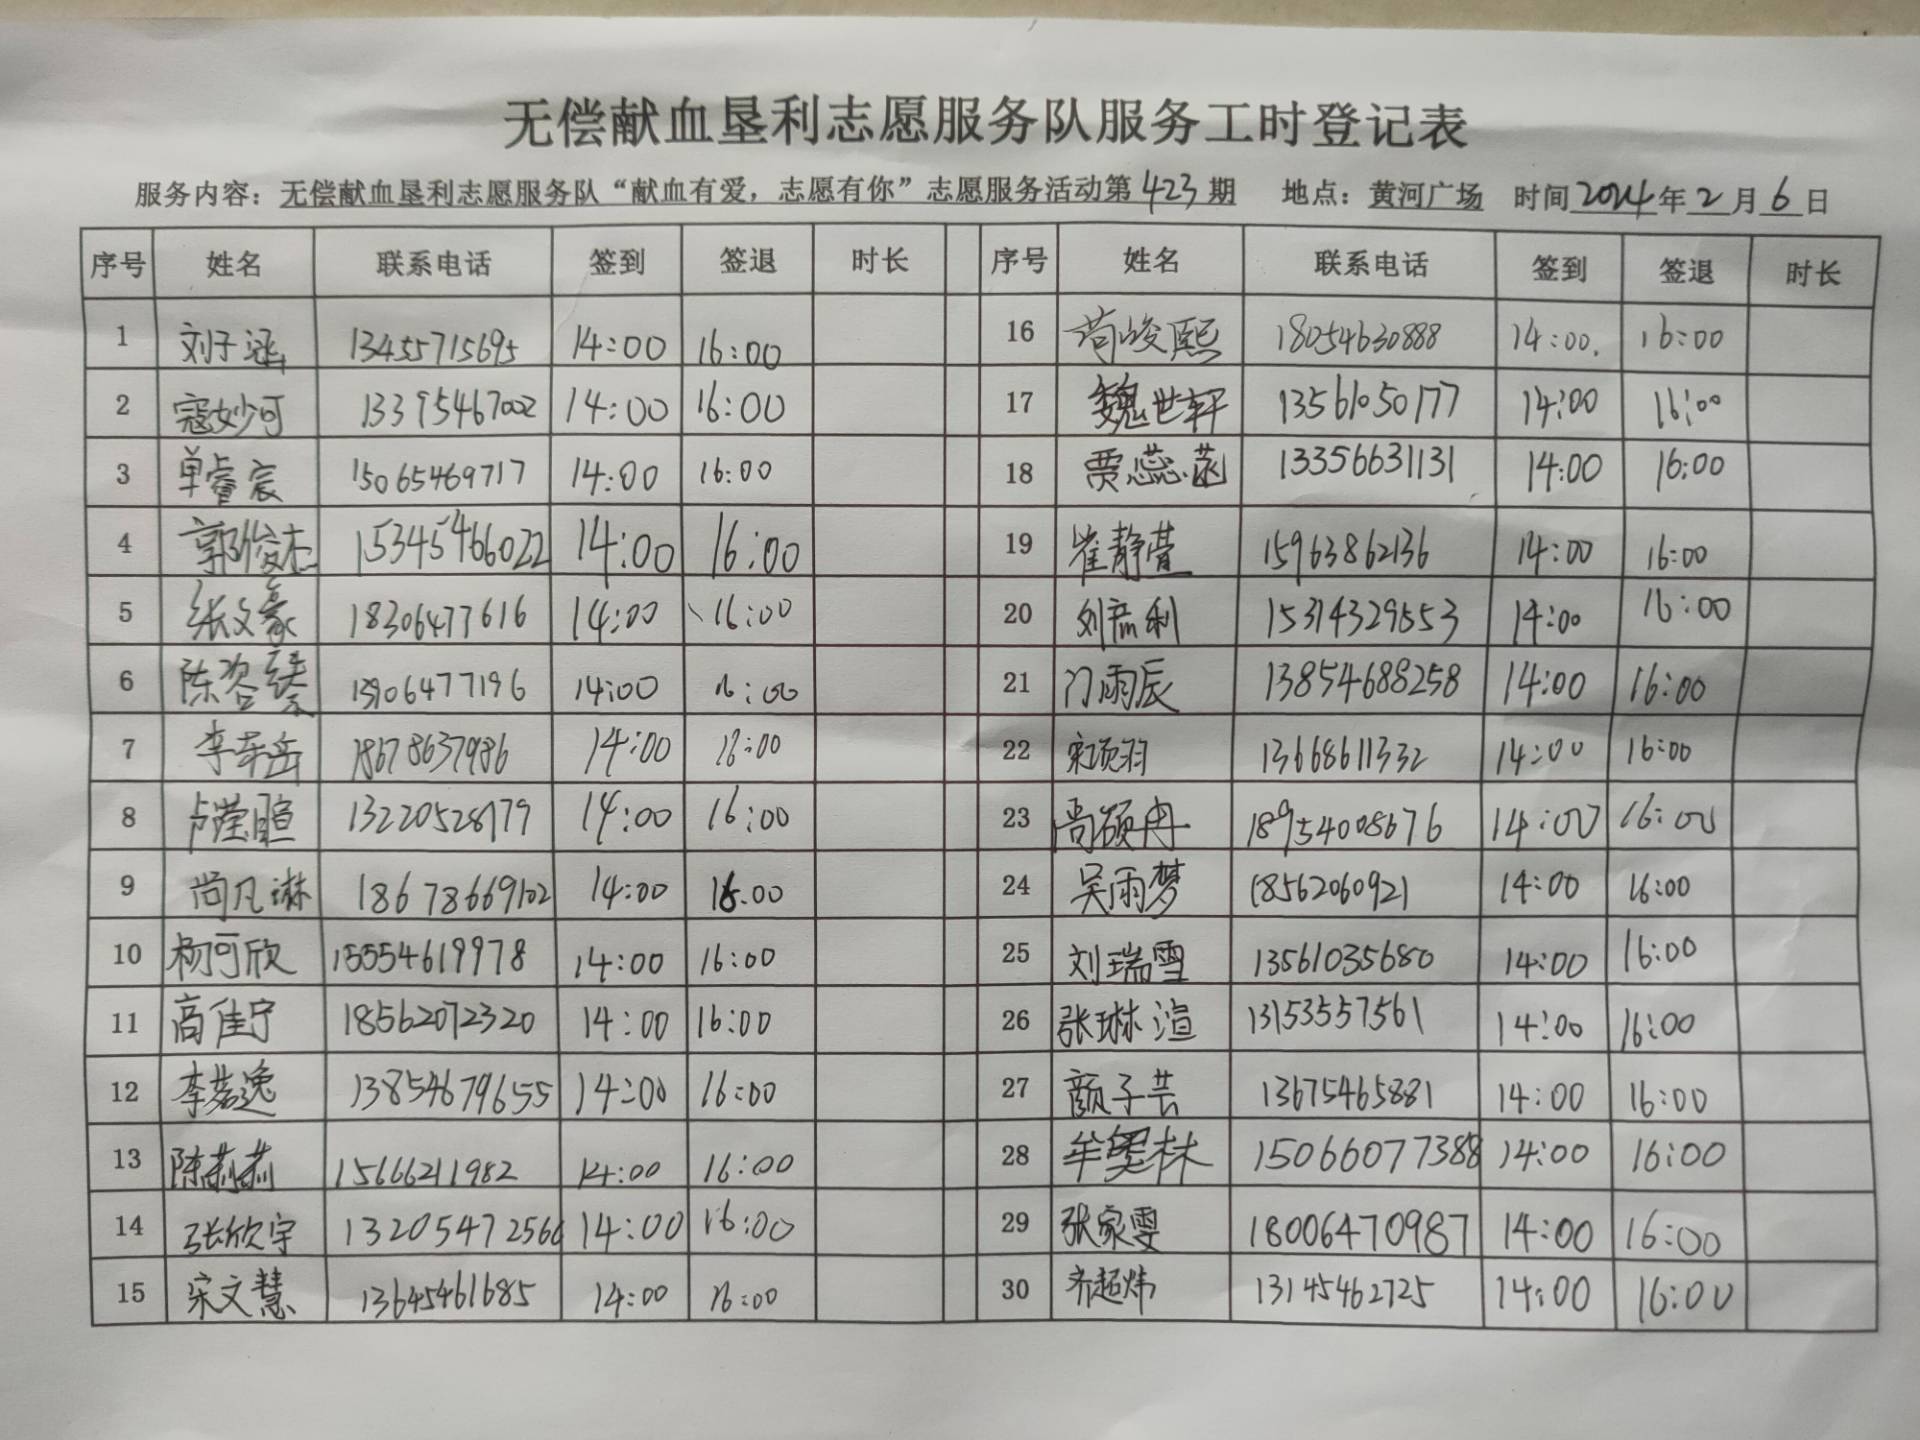 无偿献血垦利志愿服务队服务工时登记表
服务内容：无偿献血垦利志愿服务队“献血有爱，志愿有你”志愿服务活动第423期 地点：黄河广场 时间2024年2月6日
序号 姓名 联系电话 签到 签退 时长 序号 姓名 联系电话 签到 签退 时长
1 刘子涵 13455715695 14:00 16:00 16 苟峻熙 18054630888 14:00. 16:00
2 寇妙可 13395467002 14:00 16:00 17 魏世轩 13561050177 14:00 16:00
3 单睿宸 15065469717 14:00 16:00 18 贾蕊菡 13356631131 14:00 16:00
4 郭俊杰 15345466022 14:00 16:00 19 崔静萱 15963862136 14:00 16:00
5 张文豪 18306477616 14:00 16:00 20 刘彦利 15314329553 14:00 16:00
6 陈咨臻 13906477196 14:00 16:00 21 门雨辰 13854688258 14:00 16:00
7 李东岳 18678637986 14:00 16:00 22 宋顼羽 13668611332 14:00 16:00
8 卢滢暄 13220528779 14:00 16:00 23 尚硕冉 18954008676 14:00 16:00
9 尚凡琳 18678669102 14:00 16:00 24 吴雨梦 18562060921 14:00 16:00
10 杨可欣 15554619978 14:00 16:00 25 刘瑞雪 13561035680 14:00 16:00
11 高佳宁 18562072320 14:00 16:00 26 张琳渲 13153557561 14:00 16:00
12 李若逸 13854679655 14:00 16:00 27 颜子芸 13675465881 14:00 16:00
13 陈莉莉 15666211982 14:00 16:00 28 牟奕林 15066077388 14:00 16:00
14 张欣宇 13205472566 14:00 16:00 29 张家雯 18006470987 14:00 16:00
15 宋文慧 13645461685 14:00 16:00 30 齐超炜 13145462725 14:00 16:00